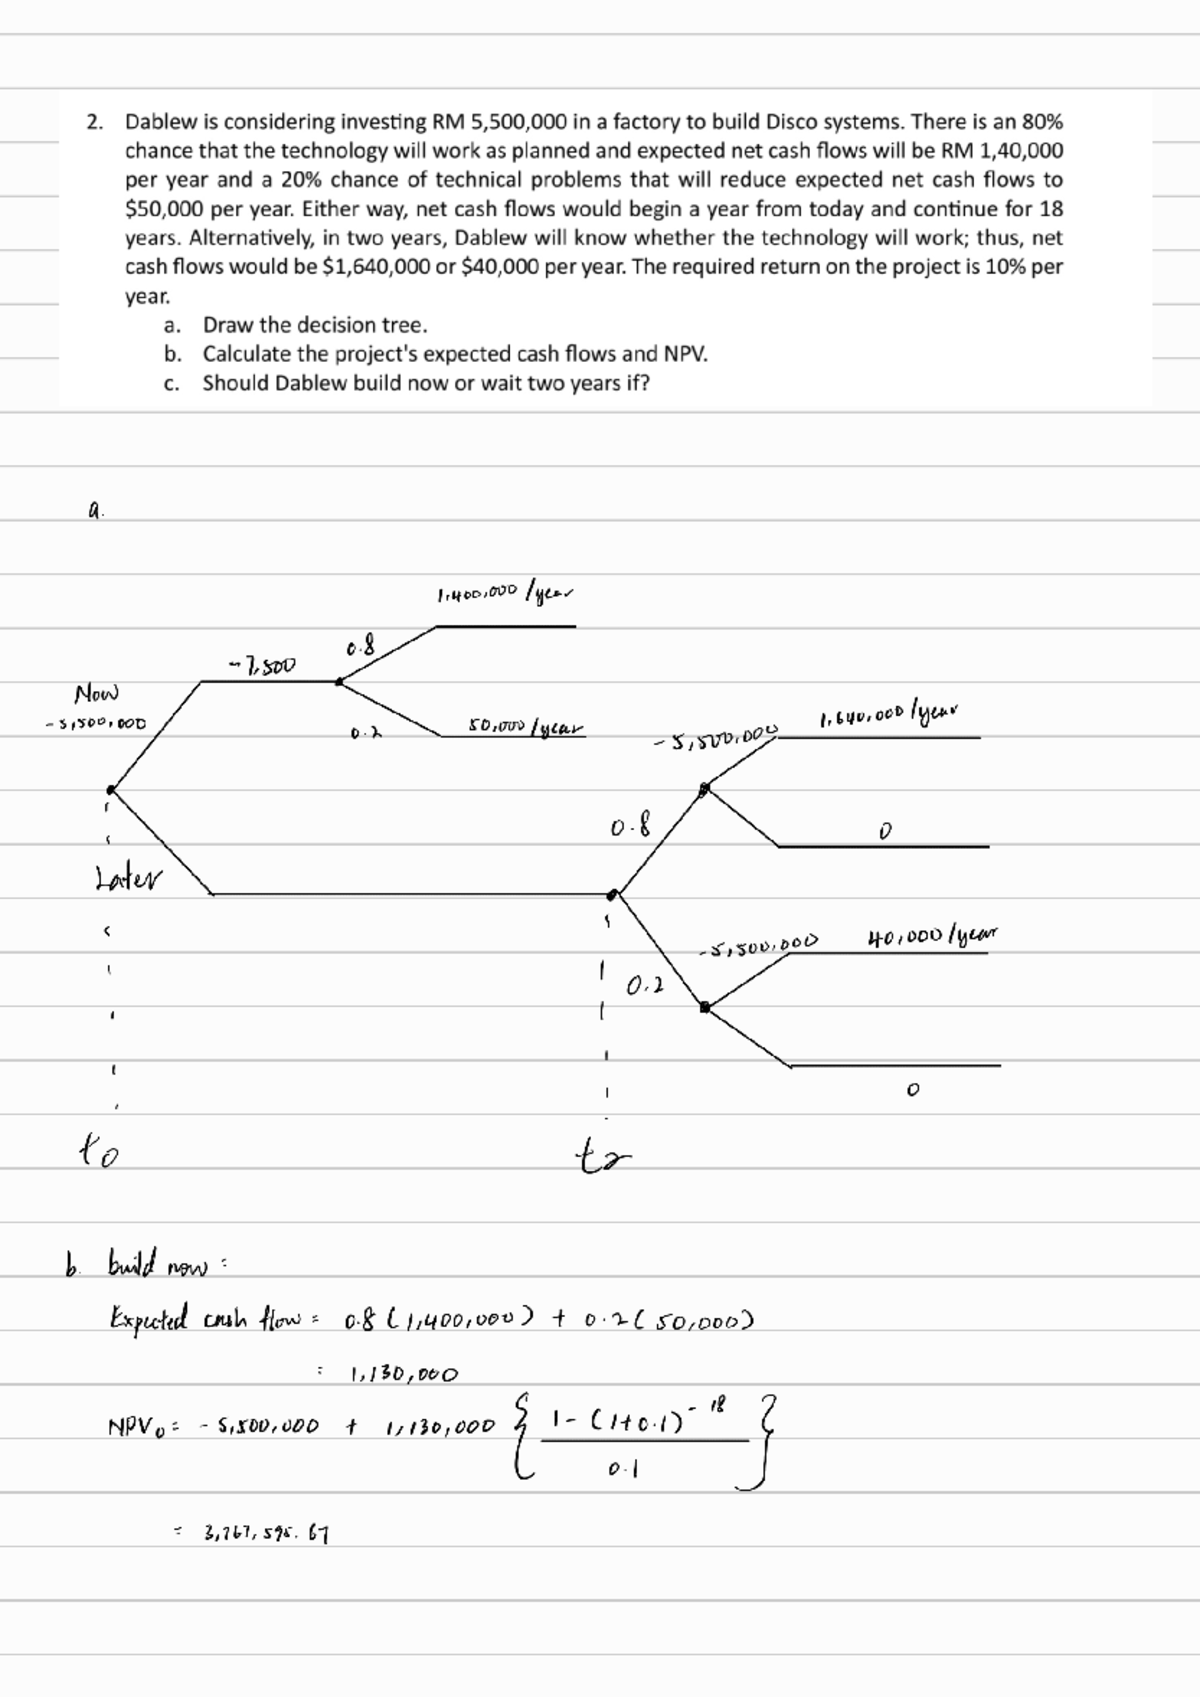 2. Dablew is considering investing RM 5,500,000 in a factory to build Disco systems. There is an 80%
chance that the technology will work as planned and expected net cash flows will be RM 1,40,000
per year and a 20% chance of technical problems that will reduce expected net cash flows to
$50,000 per year. Either way, net cash flows would begin a year from today and continue for 18
years. Alternatively, in two years, Dablew will know whether the technology will work; thus, net
cash flows would be $1,640,000 or $40,000 per year. The required return on the project is 10% per
year.
a. Draw the decision tree.
b. Calculate the project's expected cash flows and NPV.
c. Should Dablew build now or wait two years if?
a.
1,400,000 /year
0.8
-7,500
Now
-5,500,000
0.2
50,000 /year
-5,500,000
1,640,000 /year
0.8
0
Later
-5,500,000
40,000 /year
0.2
0
t0
t2
b. build now :
Expected cash flow = 0.8 (1,400,000) + 0.2 (50,000)
: 1,130,000
NPV0 = - 5,500,000 + 1,130,000 { 1 - (1+0.1)^-18 / 0.1 }
= 3,767,595.67